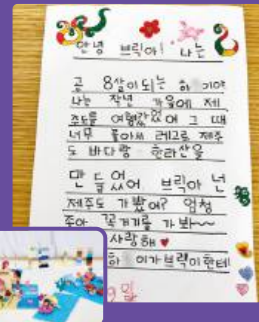 안녕 브릭아! 나는
곧 8살이 되는 하 기야
나는 작년 가을에 제
주도를 여행갔었어 그 때
너무 좋아서 레고로 제주
도 바다랑 한라산을
만들었어 브릭아 넌
제주도 가봤어? 엄청
좋아 꼭 거기를 가봐~~
사랑해
하 이가 브릭이한테